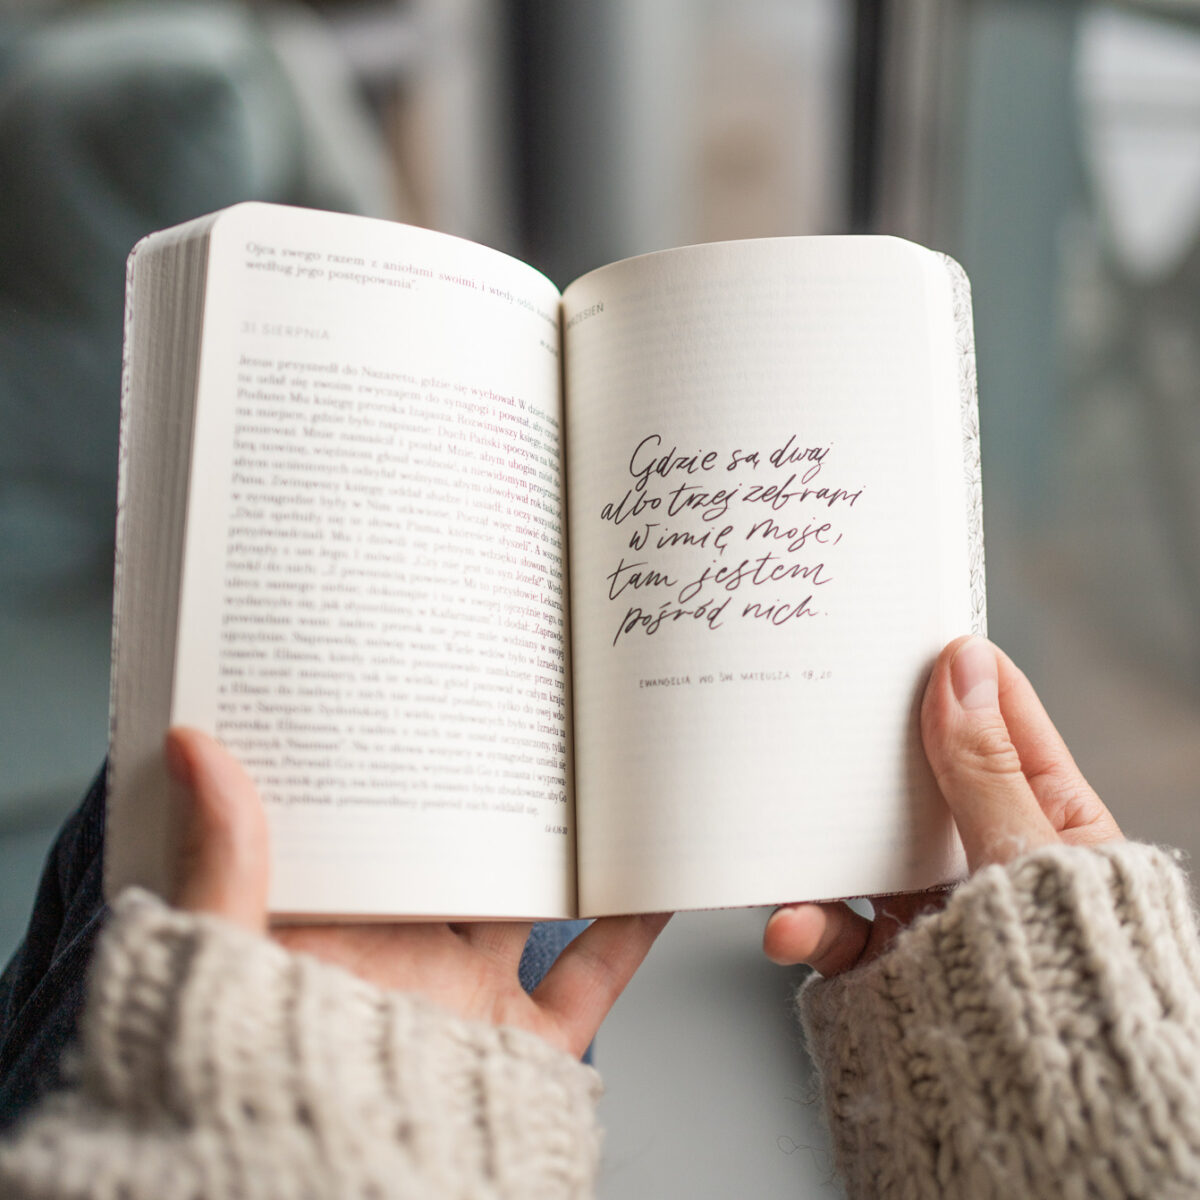 Ojca swego razem z aniołami swoimi, i wtedy odda
według jego postępowania".
31 SIERPNIA
Jezus przyszedł do Nazaretu, gdzie się wychował. W dzień
udał się swoim zwyczajem do synagogi i powstał, aby czytać.
Podano Mu księgę proroka Izajasza. Rozwinąwszy księgę,
na miejsce, gdzie było napisane: Duch Pański spoczywa na Mnie,
ponieważ Mnie namaścił i posłał Mnie, abym ubogim niósł
więźniom głosił wolność, a niewidomym przejrzenie,
abym uciśnionych odsyłał wolnymi, abym obwoływał rok łaski od
Pana. Zwinąwszy księgę oddał słudze i usiadł; a oczy wszystkich
w synagodze były w Nim utkwione. Począł więc mówić do nich:
„Dziś spełniły się te słowa Pisma, któreście słyszeli". A wszyscy
przyświadczali Mu i dziwili się pełnym wdzięku słowom, które
płynęły z ust Jego. I mówili: „Czy nie jest to syn Józefa?". Wtedy
rzekł do nich: „Z pewnością powiecie Mi to przysłowie: Lekarzu,
ulecz samego siebie; dokonajże i tu w swojej ojczyźnie tego, co
wydarzyło się, jak słyszeliśmy, w Kafarnaum". I dodał: „Zaprawdę,
powiadam wam: żaden prorok nie jest mile widziany w swojej
ojczyźnie. Naprawdę, mówię wam: Wiele wdów było w Izraelu za
czasów Eliasza, kiedy niebo pozostawało zamknięte przez trzy
lata i sześć miesięcy, tak że wielki głód panował w całym kraju;
a Eliasz do żadnej z nich nie został posłany, tylko do owej wdo-
wy w Sarepcie Sydońskiej. I wielu trędowatych było w Izraelu za
proroka Elizeusza, a żaden z nich nie został oczyszczony, tylko
Syryjczyk Naaman". Na te słowa wszyscy w synagodze unieśli się
Porwali Go z miejsca, wyrzucili Go z miasta i wyprowa-
na stok góry, na której ich miasto było zbudowane, aby Go
jednak przeszedłszy pośród nich oddalił się.
Gdzie są dwaj
albo trzej zebrani
w imię moje,
tam jestem
pośród nich.
EWANGELIA WG ŚW. MATEUSZA 18, 20